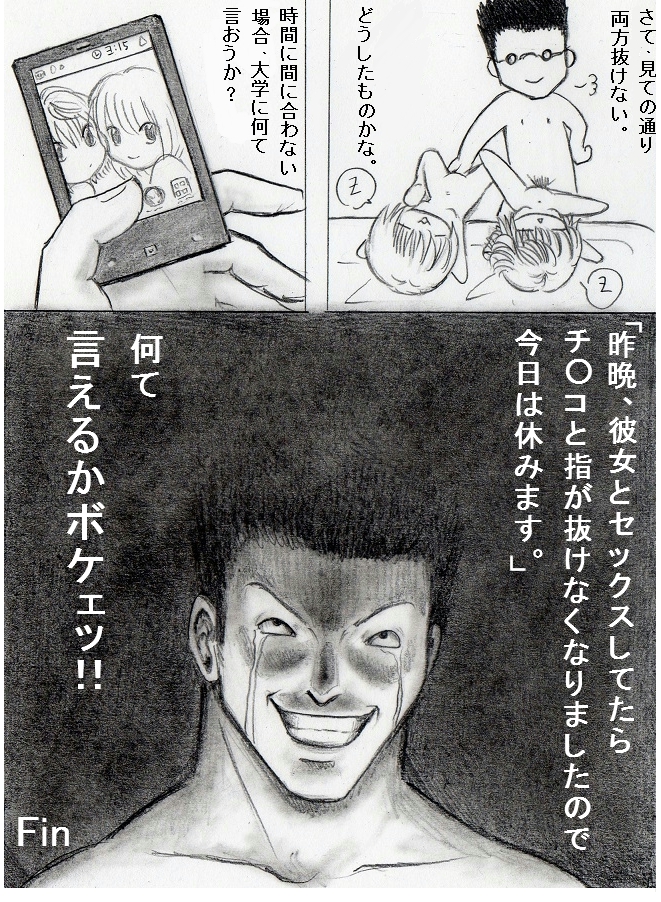 さて、見ての通り
両方抜けない。
どうしたものかな。
Z
Z
時間に間に合わない
場合、大学に何て
言おうか？
3:15
「昨晩、彼女とセックスしてたら
チ〇コと指が抜けなくなりましたので
今日は休みます。」
何て
言えるかボケェッ!!
Fin